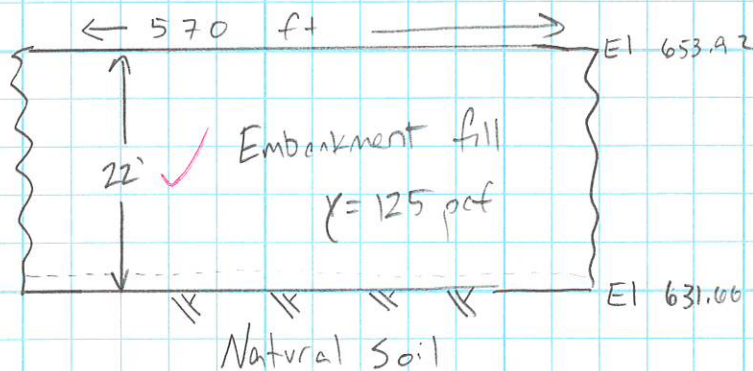 570 ft
El 653.92
Embankment fill
22'
γ = 125 pcf
El 631.66
Natural Soil